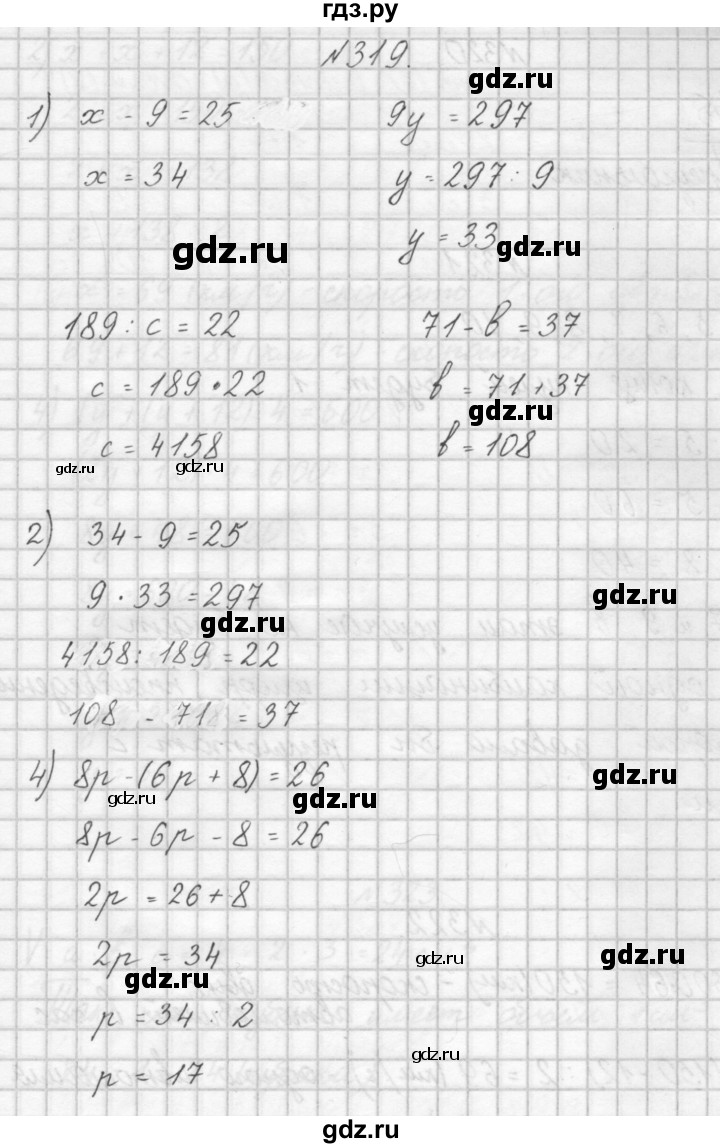 гдз.ру
№319.
gdz.ru
1) x - 9 = 25 9y = 297
x = 34 y = 297 : 9
gdz.ru y = 33 gdz.ru
189 : c = 22 71 - b = 37
c = 189 · 22 b = 71 + 37
gdz.ru
c = 4158 b = 108
gdz.ru gdz.ru
2) 34 - 9 = 25
9 · 33 = 297 gdz.ru
gdz.ru
4158 : 189 = 22
108 - 71 = 37
4) 8p - (6p + 8) = 26 gdz.ru
gdz.ru gdz.ru
8p - 6p - 8 = 26
2p = 26 + 8
2p = 34 gdz.ru gdz.ru
gdz.ru
p = 34 : 2
gdz.ru
p = 17
gdz.ru